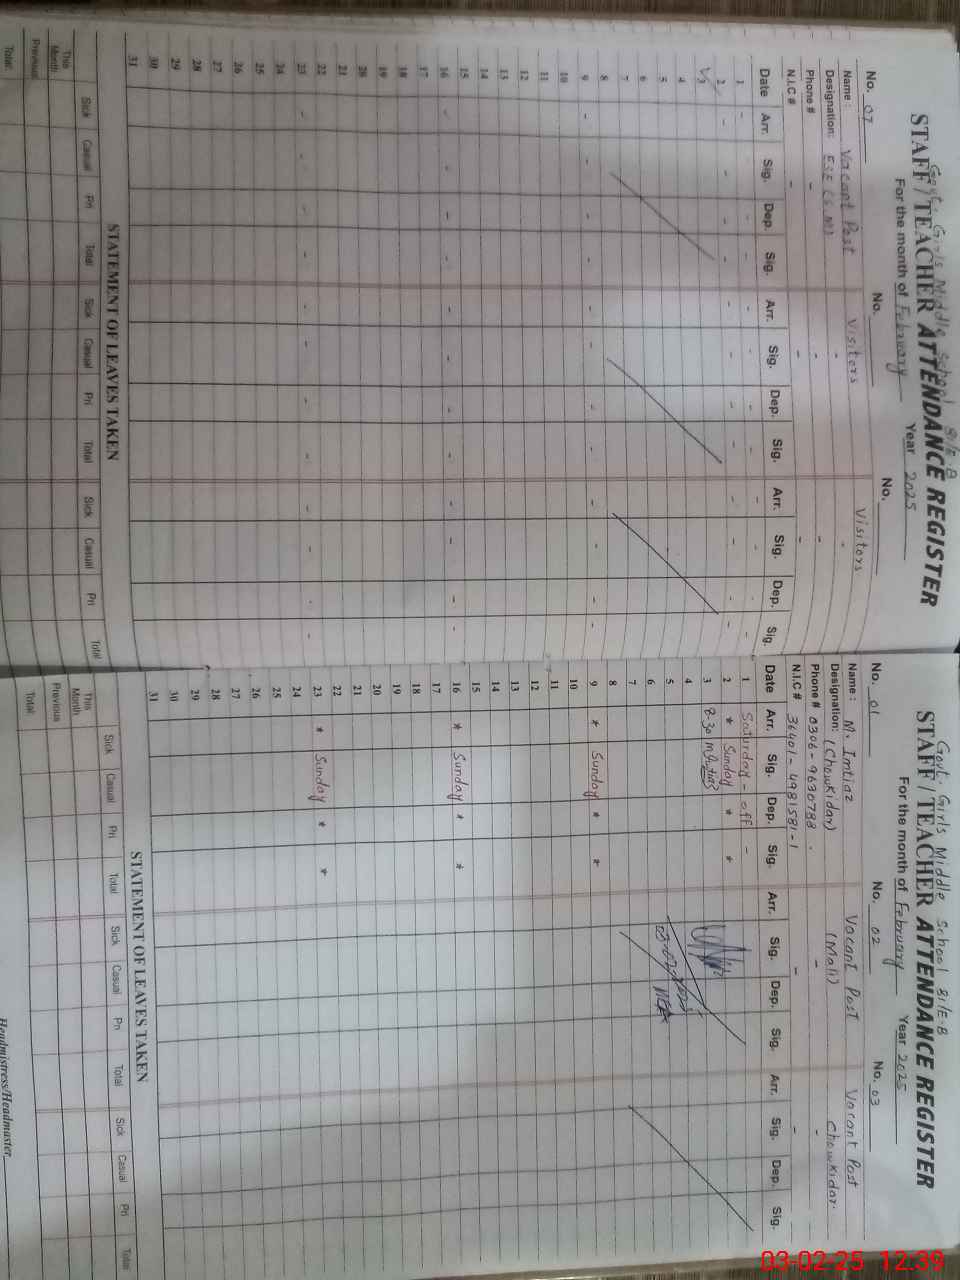 Govt. Girls Middle School 81/E.B
STAFF / TEACHER ATTENDANCE REGISTER
For the month of February Year 2025
No. 07 No. No.
Name : Vacant Post Visitors Visitors
Designation: ESE (S.M) -
Phone # - - -
N.I.C # - - -
Date Arr. Sig. Dep. Sig. Arr. Sig. Dep. Sig. Arr. Sig. Dep. Sig.
1 - - - - - -
2 - - - - - - - - - - - -
3
4
5
6
7
8
9 - - - - - - - - - - - -
10
11
12
13
14
15
16 - - - - - - - - - - - -
17
18
19
20
21
22
23 - - - - - - - - - - - -
24
25
26
27
28
29
30
31
STATEMENT OF LEAVES TAKEN
Sick Casual Pri Total Sick Casual Pri Total Sick Casual Pri Total
This Month
Previous
Total:
Govt. Girls Middle School 81/E.B
STAFF / TEACHER ATTENDANCE REGISTER
For the month of February Year 2025
No. 01 No. 02 No. 03
Name : M. Imtiaz Vacant Post Vacant Post
Designation: (Chowkidar) (Mali) Chowkidar.
Phone # 0306-9630788 . - -
N.I.C # 36401-4981581-1 - -
Date Arr. Sig. Dep. Sig. Arr. Sig. Dep. Sig. Arr. Sig. Dep. Sig.
1 Saturday - off -
2 * Sunday * *
3 8-30
4
5
6
7
8
9 * Sunday * *
10
11
12
13
14
15
16 * Sunday * *
17
18
19
20
21
22
23 * Sunday * *
24
25
26
27
28
29
30
31
STATEMENT OF LEAVES TAKEN
Sick Casual Pri Total Sick Casual Pri Total Sick Casual Pri Total
This Month
Previous
Total:
Headmistress/Headmaster
03-02-25 12:39